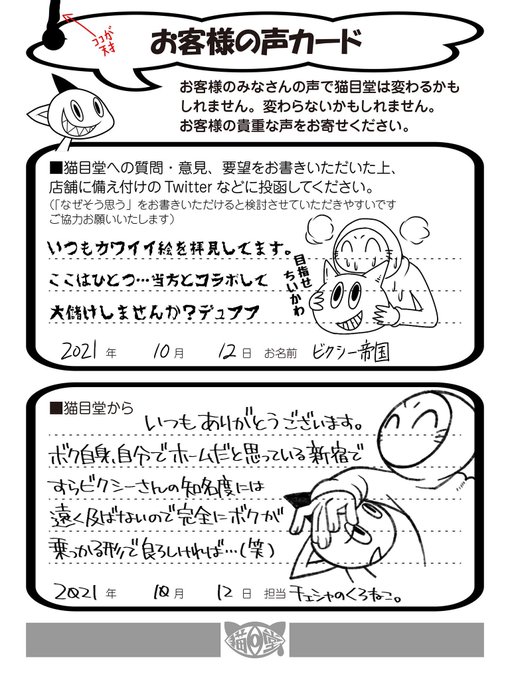 ココが
天才
お客様の声カード
お客様のみなさんの声で猫目堂は変わるかも
しれません。変わらないかもしれません。
お客様の貴重な声をお寄せください。
■猫目堂への質問・意見、要望をお書きいただいた上、
店舗に備え付けの Twitter などに投函してください。
(「なぜそう思う」をお書きいただけると検討させていただきやすいです
ご協力お願いいたします)
いつもカワイイ絵を拝見してます。
ここはひとつ…当方とコラボして
大儲けしませんか?デュフフ
目指せ
ちいかわ
2021 年 10 月 12 日 お名前 ビクシー帝国
■猫目堂から
いつもありがとうございます。
ボク自身、自分でホームだと思っている新宿で
すらビクシーさんの知名度には
遠く及ばないので完全にボクが
乗っかる形で良ろしければ…(笑)
2021 年 10 月 12 日 担当 チェシャのくろねこ。
猫目堂